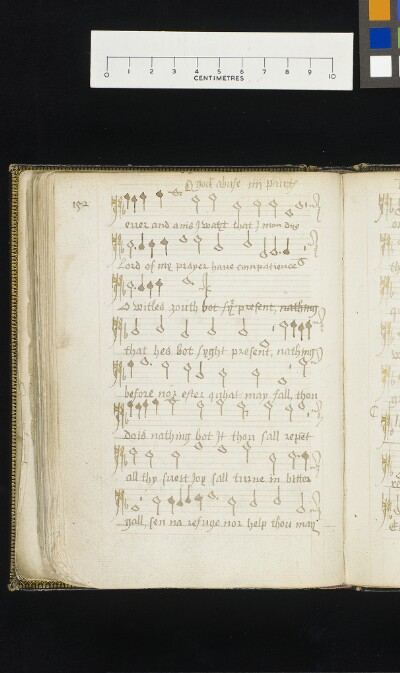 0 1 2 3 4 5 6 7 8 9 10
CENTIMETRES
O god abuse in pairt
152
euer and anis I wait that I mon dog
Lord of my prayer haue compatience
O witles zouth bot syt present, nathing
that hes bot syght present, nathing
before nor efter quhat may fall, thou
dois nathing bot It thou sall repet
all thy sueit Joy sall turne in bitter
gall, sen na refuge nor help thou may